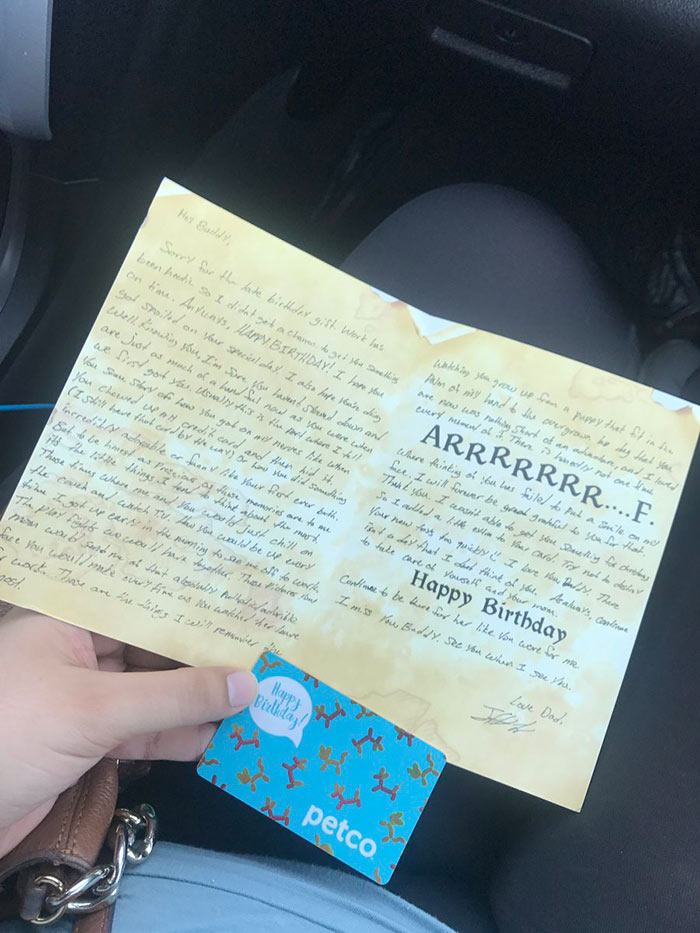 Hey Buddy,
Sorry for the late birthday gift. Work has
been hectic so I didnt get a chance to get you something
on time. Anyways, HAPPY BIRTHDAY! I hope you
got spoiled on your special day. I also hope you're doing
well. Knowing you, I'm sure you havent slowed down and
are just as much of a hand full now as you were when
we first got you. Usually this is the part where I tell
you some story of how you got on my nerves like when
you chewed up my credit card and then hid it.
(I still have that card by the way) or how you did something
incredibly adorable or funny like your first ever bath.
But to be honest as precious as those memories are to me
its the little things I tend to think about the most.
Those times when me and you would just chill on
the couch and watch TV. How you would be up every
time I got up early in the morning to see me off to work.
The play fights we would have together. Those pictures your
mom would send me of that absolutely adorable
face you would make every time as you watched her leave
for work. Those are the things I will remember
Watching you grow up from a puppy that fit in the
palm of my hand to the overgrown big dog that you
are now was nothing short of an adventure, and I loved
every moment of it. There is honestly not one time
ARRRRRRR....F.
where thinking of you has failed to put a smile on my
face. I will forever be great grateful to you for that
Thank you. I wasnt able to get you something for christmas
so I added a little extra to your card. Try not to destroy
your new toys too quickly!! I love you Buddy. There
isnt a day that I dont think of you. Always continue
to take care of yourself and your mom.
Happy Birthday
Continue to be there for her like you were for me
I miss you, Buddy. See you when I see you.
Love Dad,
Happy
Birthday!
petco